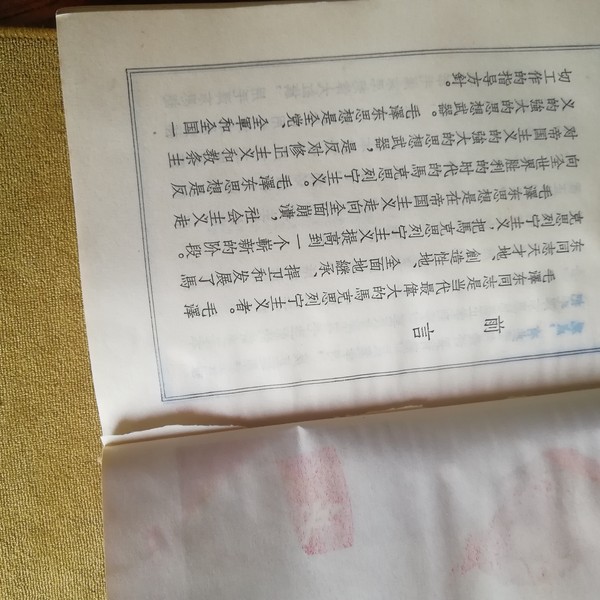 前言
毛澤东同志是当代最偉大的馬克思列宁主义者。毛澤
东同志天才地、創造性地、全面地继承、捍卫和发展了馬
克思列宁主义，把馬克思列宁主义提高到一个嶄新的阶段。
毛澤东思想是在帝国主义走向全面崩潰，社会主义走
向全世界胜利的时代的馬克思列宁主义。毛澤东思想是反
对帝国主义的強大的思想武器，是反对修正主义和教条主
义的強大的思想武器。毛澤东思想是全党、全軍和全国一
切工作的指导方針。